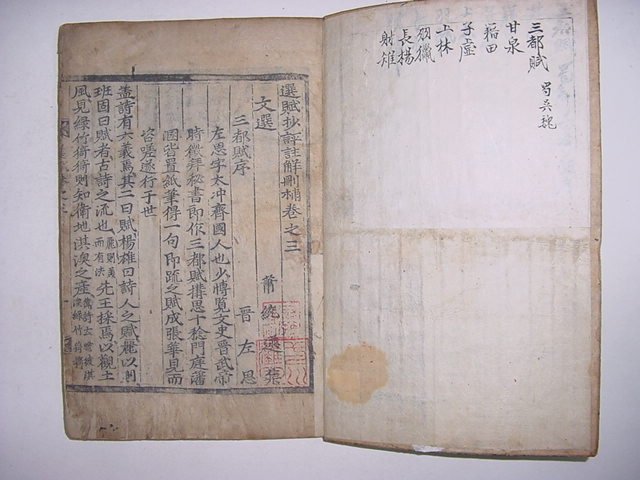 三都賦 蜀吳魏
甘泉
藉田
子虛
上林
羽獵
長楊
射雉
選賦抄評註解刪補卷之三
文選 蕭統 選
三都賦序 晉左思
左思字太冲齊國人也少博覽文史晉武帝
時徵拜秘書郎作三都賦搆思十稔門庭藩
溷皆置紙筆得一句即疏之賦成張華見而
咨嗟遂行于世
盖詩有六義焉其二曰賦楊雄曰詩人之賦麗以則
班固曰賦者古詩之流也 先王採焉以觀土
風見綠竹猗猗則知衛地淇澳之產